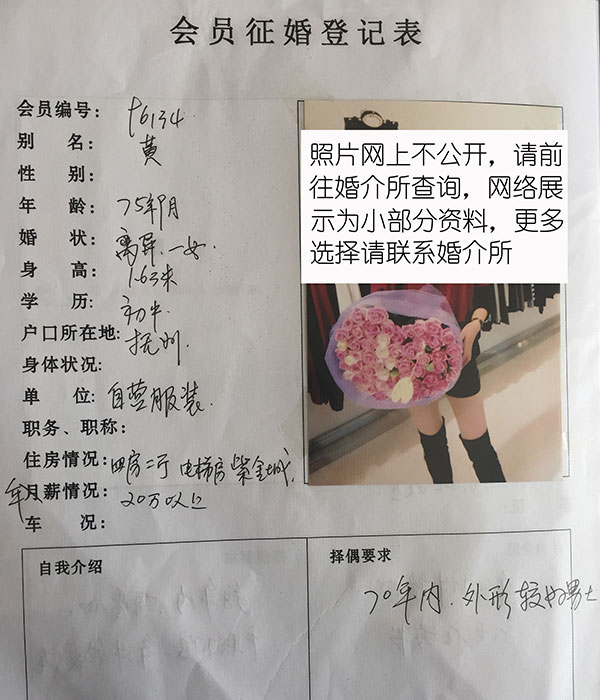 会员征婚登记表
会员编号: f6134
别 名: 黄
性 别:
年 龄: 75年9月
婚 状: 离异.一女
身 高: 1.63米
学 历: 初中
户口所在地: 抚州
身体状况:
单 位: 自营服装.
职务、职称:
住房情况: 四房二厅 电梯房 紫金城.
年月薪情况: 20万以上
车 况:
照片网上不公开，请前
往婚介所查询，网络展
示为小部分资料，更多
选择请联系婚介所
自我介绍
择偶要求
70年内.外形较好男士